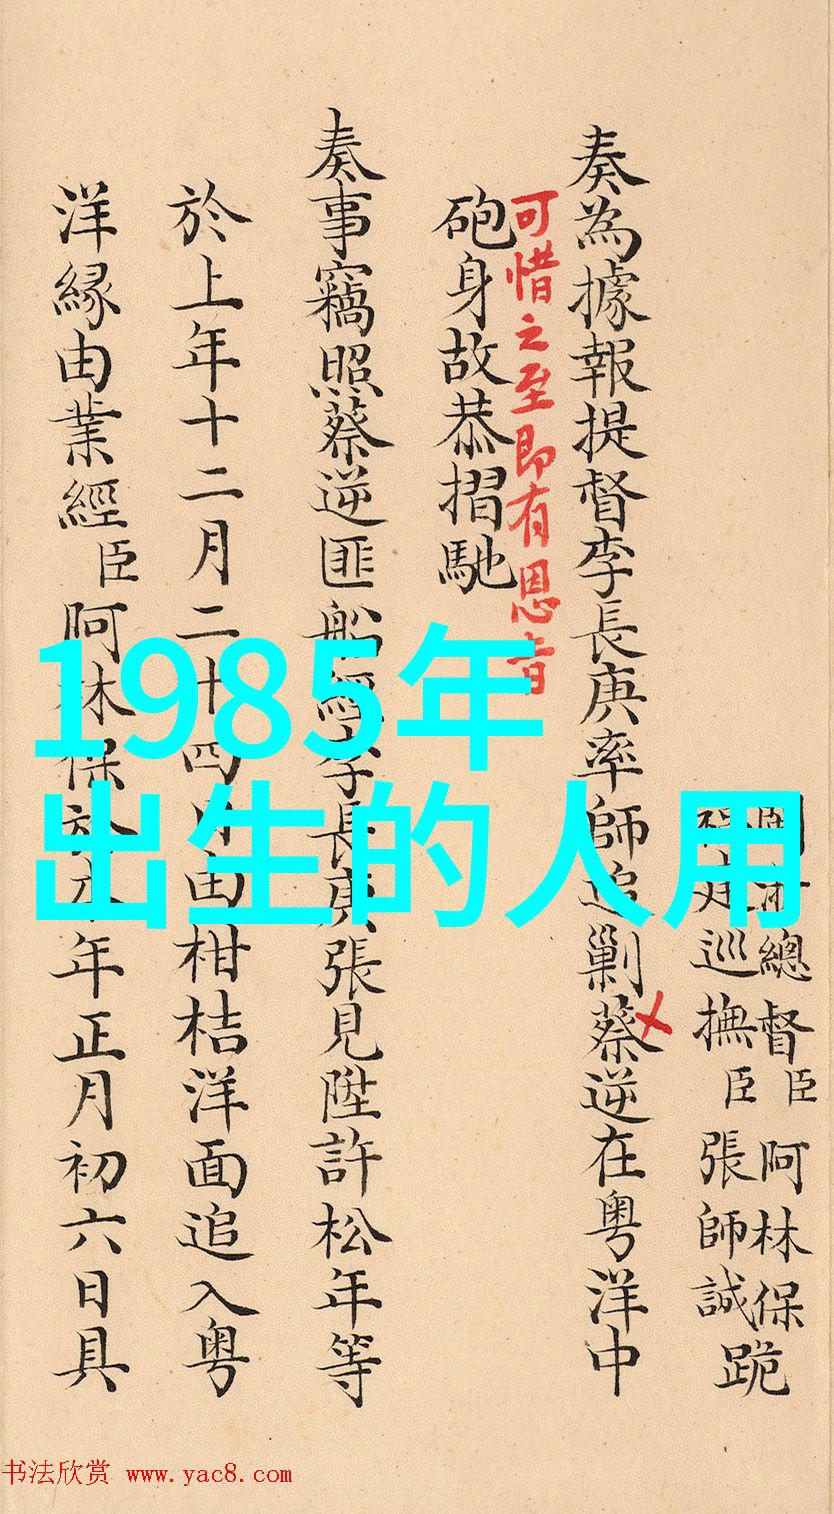 總督臣阿林保
巡撫臣張師誠
跪
奏為據報提督李長庚率師追剿蔡逆在粤洋中
可惜之至即有恩旨
砲身故恭摺馳
奏事竊照蔡逆匪船經李長庚張見陞許松年等
於上年十二月二十四日由柑桔洋面追入粤
洋緣由業經臣阿林保於本年正月初六日具
1985年
出生的人用
书法欣赏 www.yac8.com